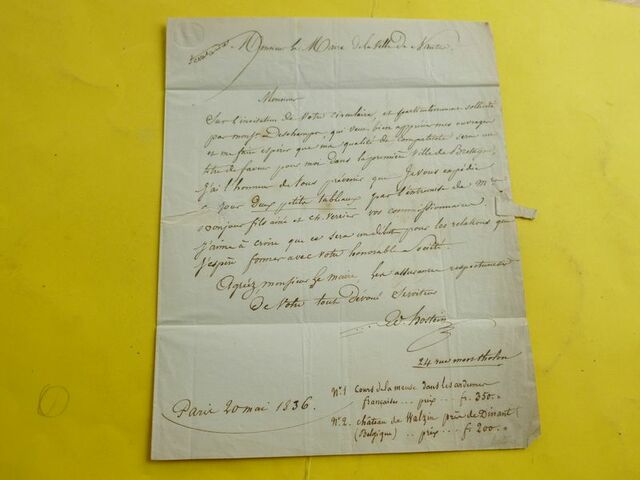 Monsieur le Maire de la Ville de Nantes
Monsieur
Sur l'invitation de Votre circulaire, et particulièrement sollicité
par mons.r Deschamps, qui veut bien apprécier mes ouvrages
et me faire espérer que ma qualité de compatriote sera un
titre de faveur pour moi dans la première Ville de Bretagne,
J'ai l'honneur de Vous prévenir que Je vous expédie
ce jour deux petits tableaux par l'entremise de Mrs
bonjour fils ainé et Ch. Verrier vos commissionnaires.
J'aime à croire que ce sera un début pour les relations que
J'espère former avec Votre honorable Société.
Agréez, monsieur le maire les assurances respectueuses
De Votre tout Dévoué Serviteur
Ed. hostein
24 rue mont tholon
Paris 20 mai 1836.
N.º 1 Cours de la meuse dans les ardennes
françaises .. prix ... fr. 350. "
N.º 2. château de Walzin près de Dinant
(Belgique) .. prix ... fr 200. "